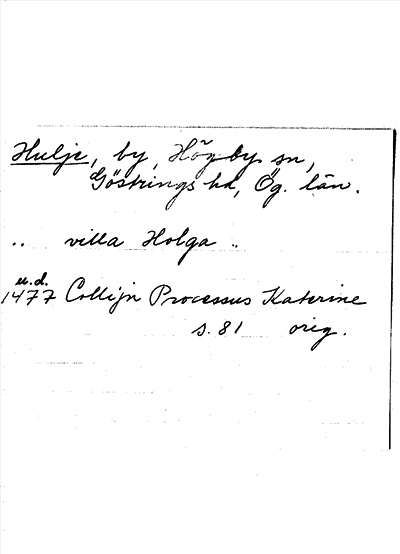 Hulje, by, Högby sn,
Göstrings hd, Ög. län.
.. villa Holga ..
u.d.
1477 Collijn Processus Katerine
s. 81 orig.